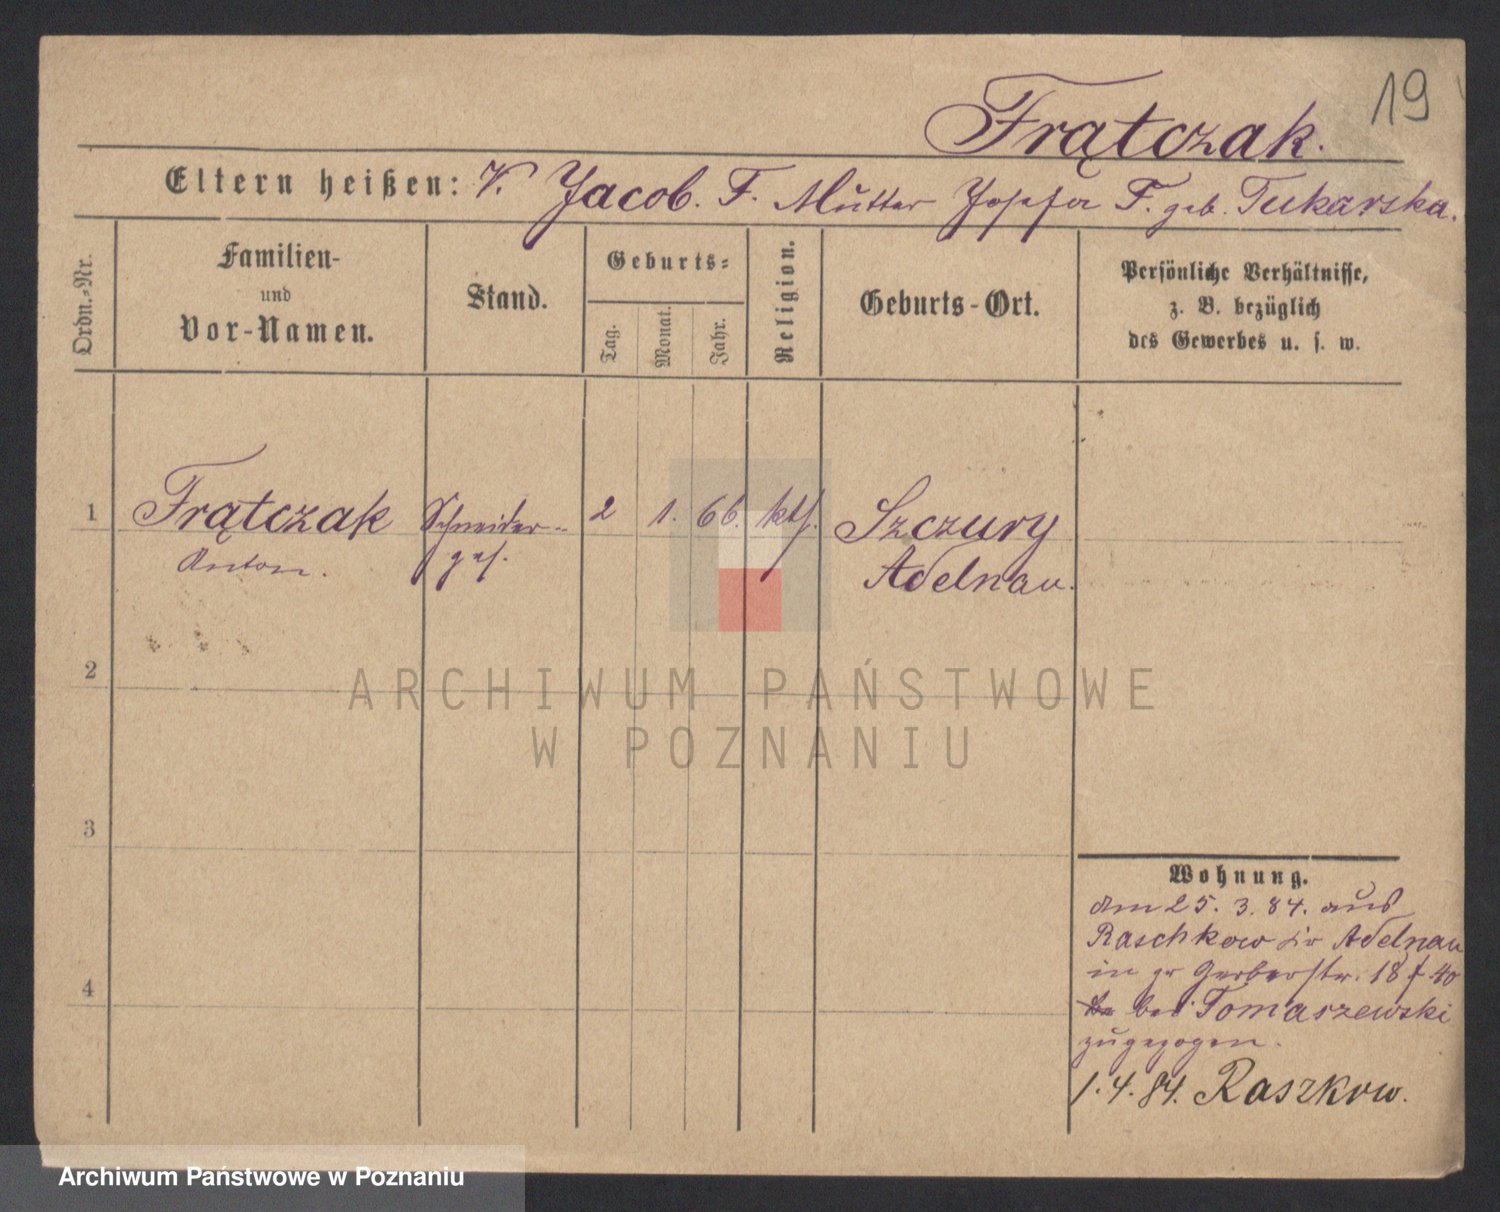 19
Frątczak.
Eltern heißen: V. Jacob. F. Mutter Josefa F. geb. Tukarska.
Ordn.-Nr.
Familien- und Vor-Namen.
Stand.
Geburts-
Tag.
Monat.
Jahr.
Religion.
Geburts-Ort.
Persönliche Verhältnisse,
z. B. bezüglich
des Gewerbes u. s. w.
1 Frątczak Schneider- 2 1. 66. kth. Szczury
Anton. ges. Adelnau.
2
3
4
Wohnung.
Am 25. 3. 84. aus
Raschkow Adelnau
in gr Gerberstr. 18 40
bei Tomaszewski
zugezogen.
1. 4. 84. Raszkow.
ARCHIWUM PAŃSTWOWE
W POZNANIU
Archiwum Państwowe w Poznaniu